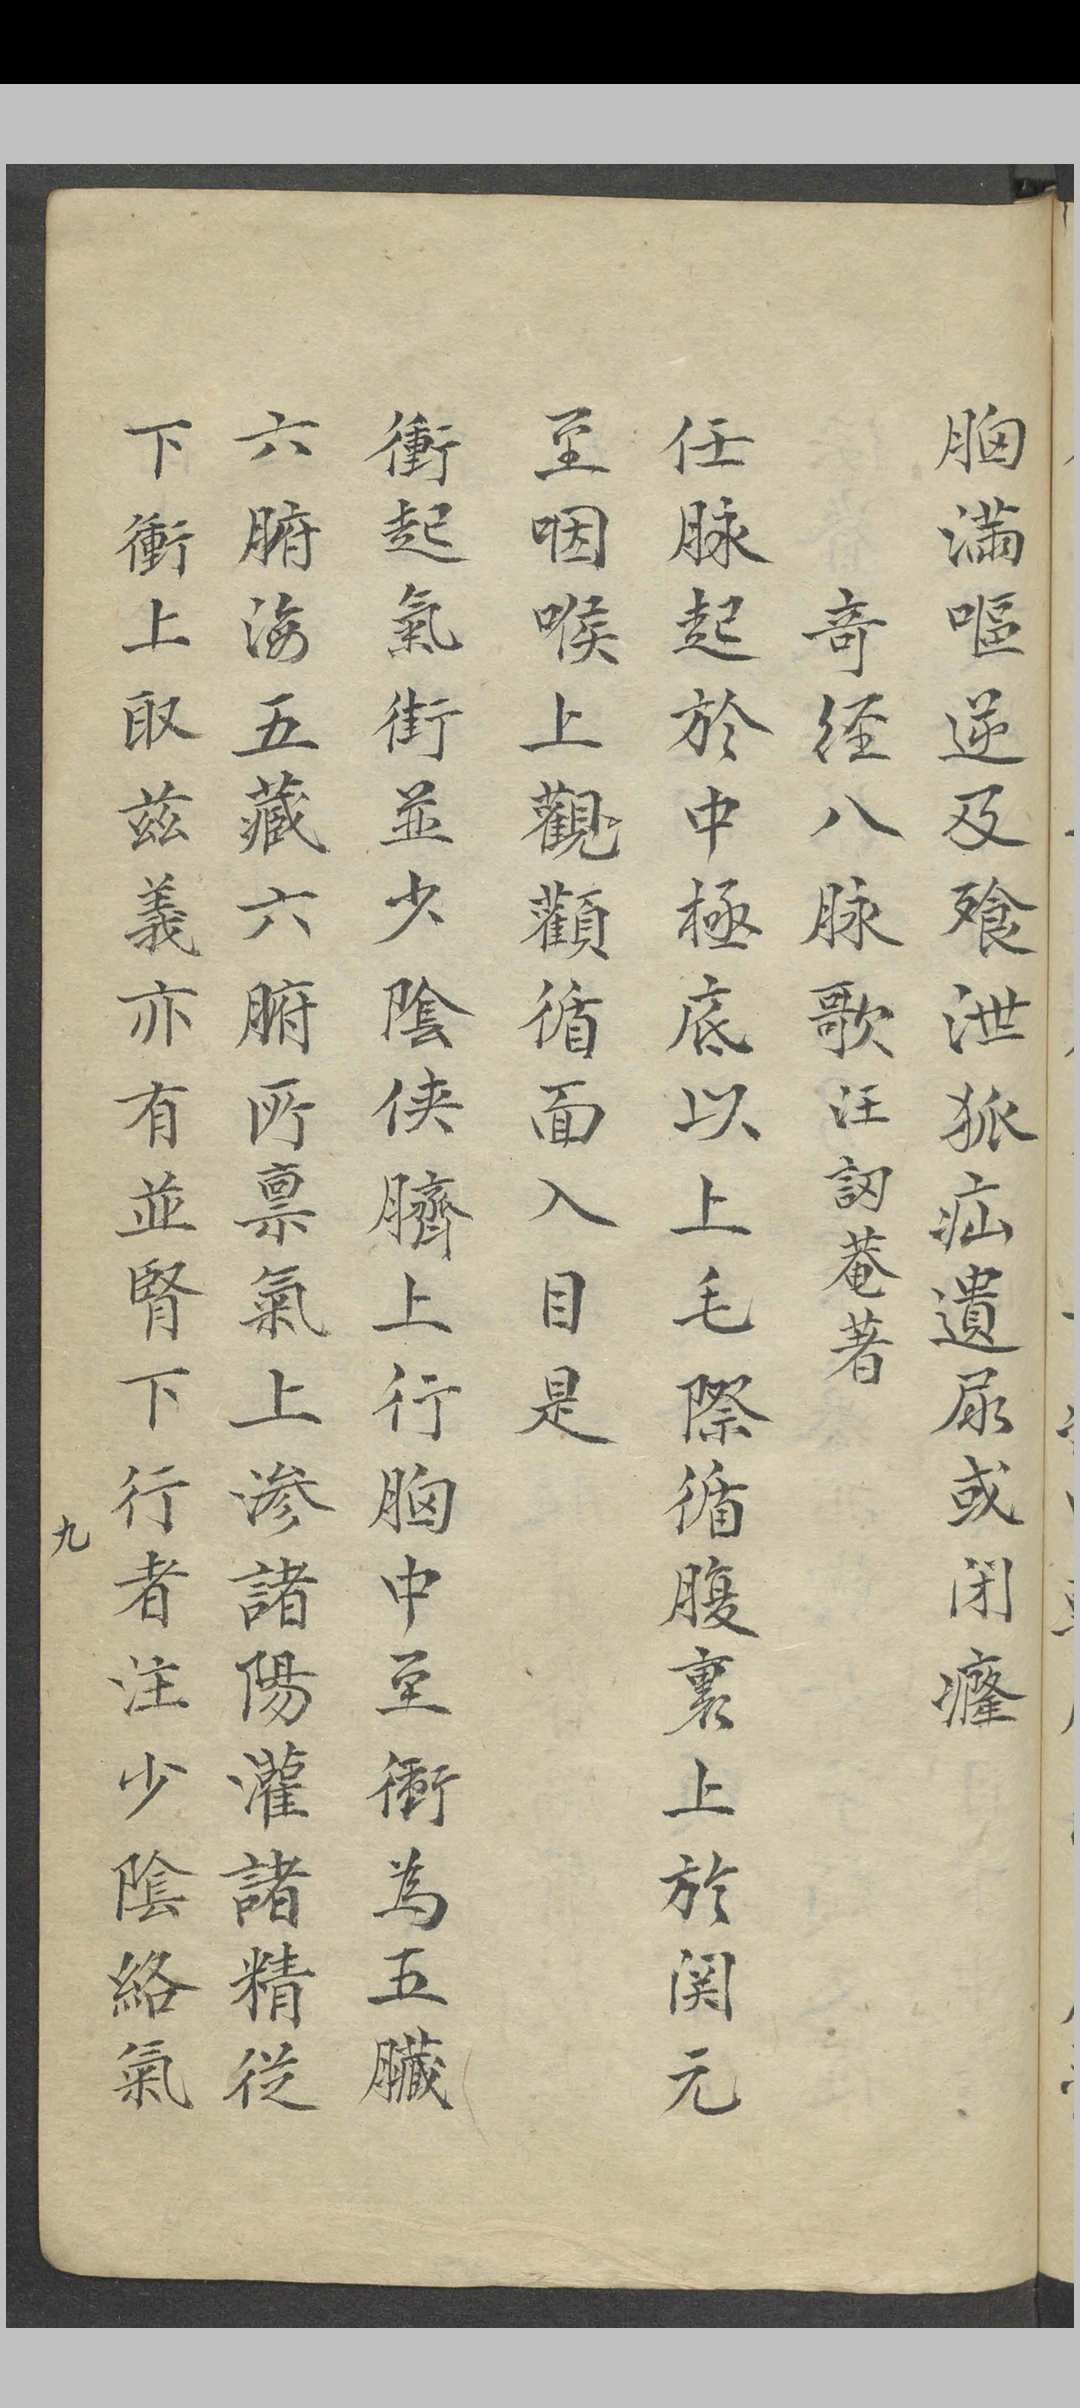 胸滿嘔逆及飱泄狐疝遺尿或閉癃
奇經八脉歌汪訒菴著
任脉起於中極底以上毛際循腹裏上於関元
至咽喉上觀顴循面入目是
衝起氣街並少陰俠臍上行胸中至衝為五臓
六腑海五藏六腑所禀氣上渗諸陽灌諸精従
下衝上取兹義亦有並腎下行者注少陰絡氣
九